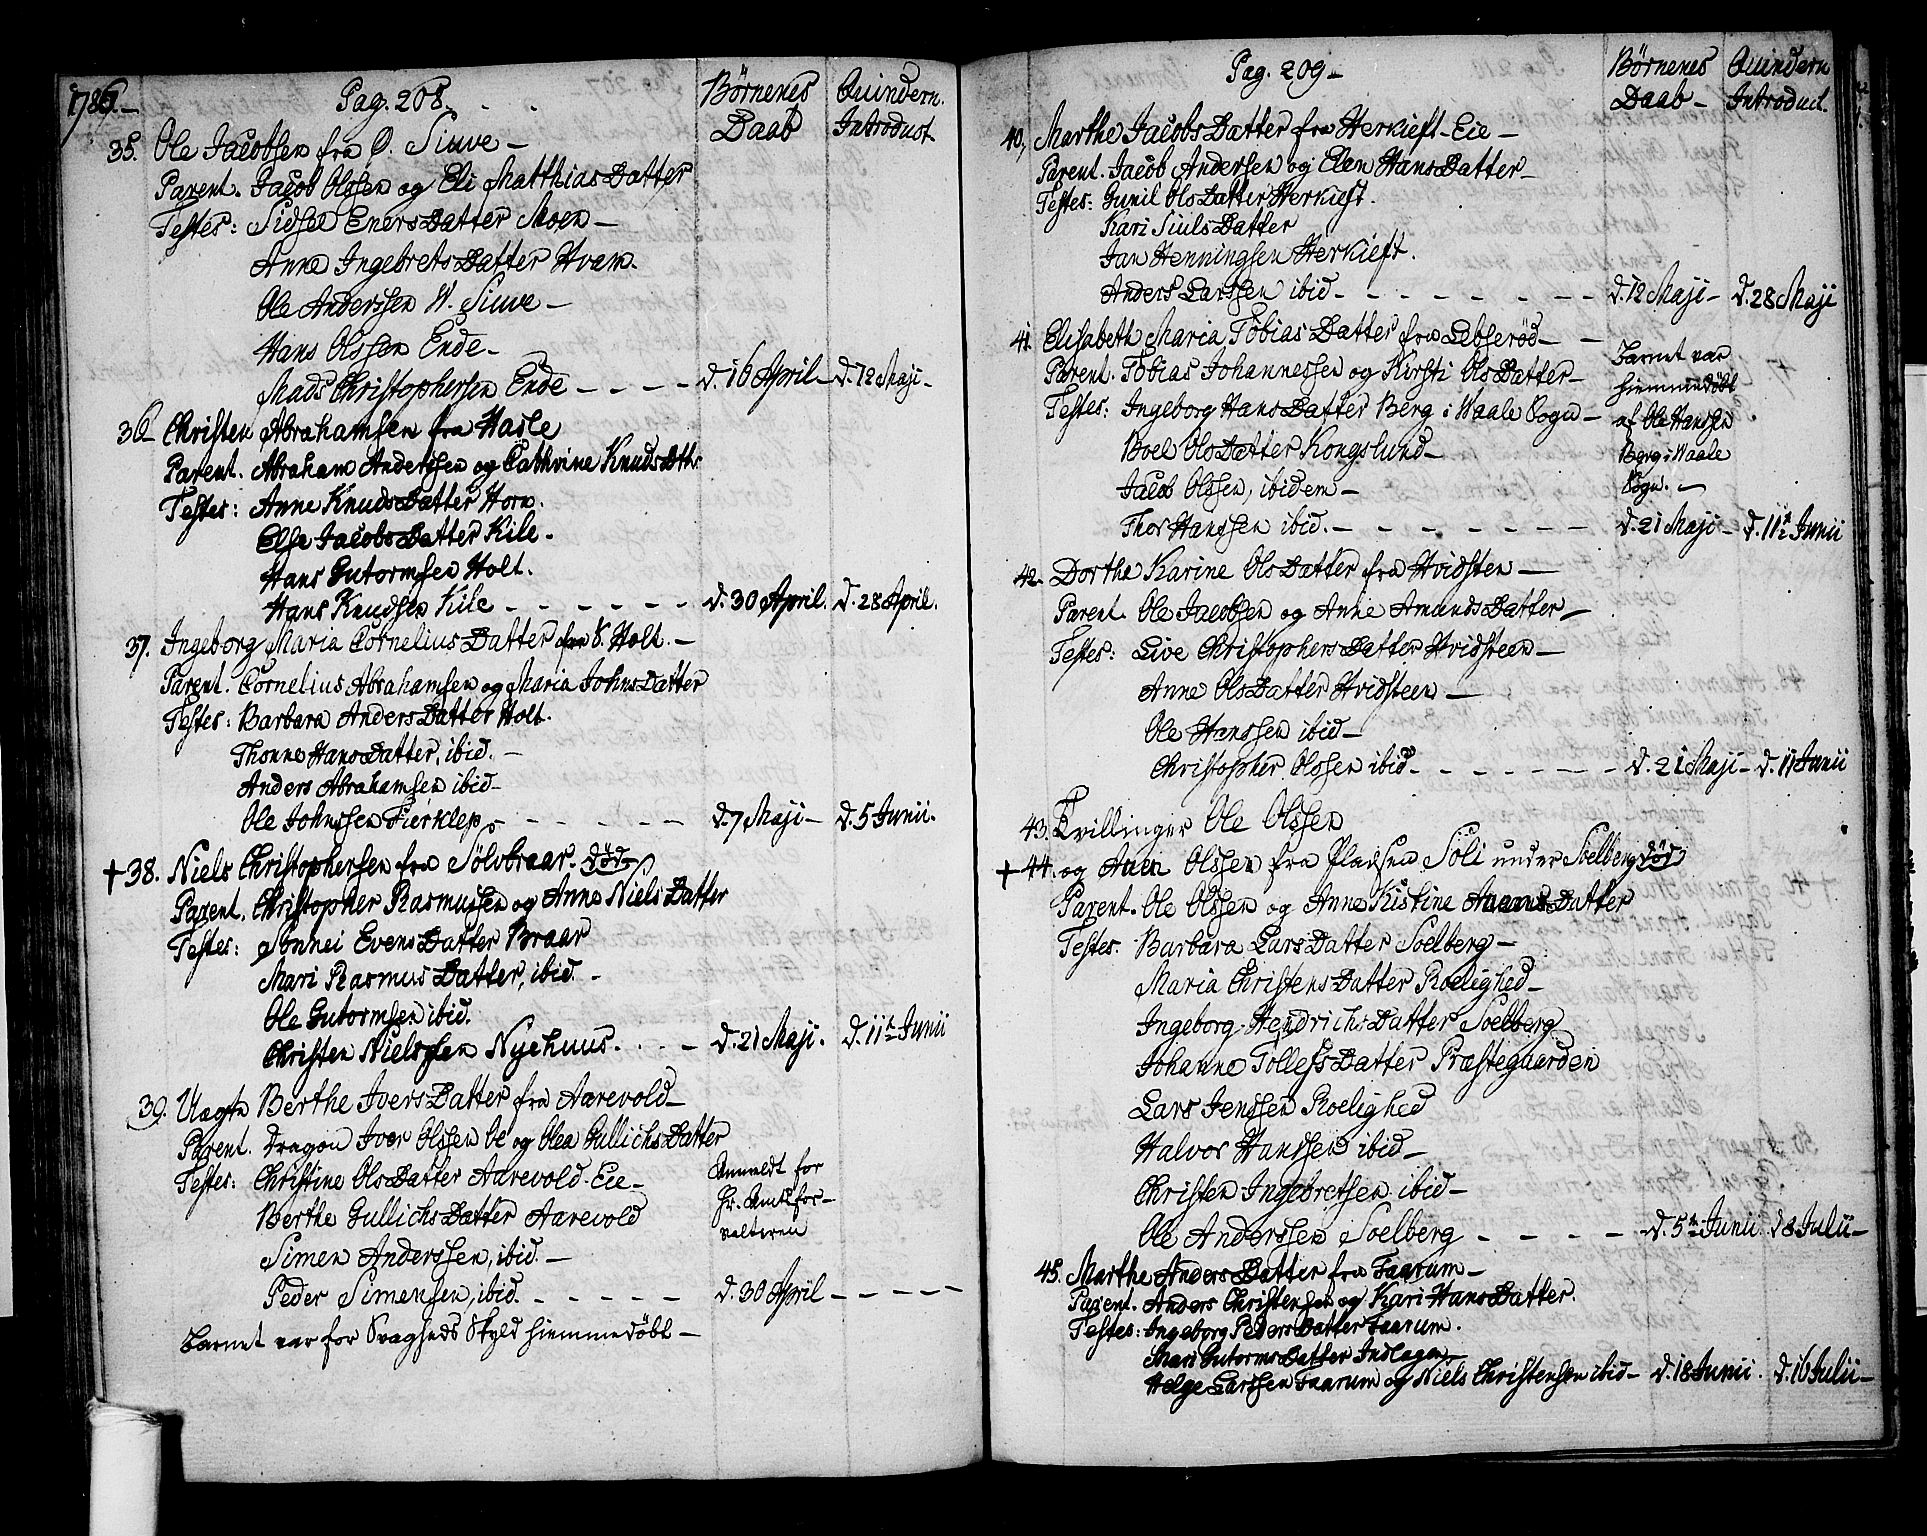 1786.
Pag. 208.
Börnenes Daab
Quindern. Introduct.
35. Ole Jacobsen fra Ø. Siuve
Parent. Jacob Olssen og Eli MatthiasDatter
Testes: Sidsel EnersDatter Moen
Anne IngebretsDatter Hvam.
Ole Anderssen W. Siuve
Hans Olssen Ende
Mads Christophersen Ende d. 16 April d. 12 Maji
36 Christen Abrahamsen fra Hasle
Parent. Abraham Anderssen og Cathrine KnudsDttr
Testes: Anne KnudsDatter Horn.
Else JacobsDatter Kile.
Hans Gutormsen Holt.
Hans Knudsen Kile d. 30 April. d. 28 April.
37. Ingeborg Maria CorneliusDatter fra V. Holt.
Parent. Cornelius Abrahamsen og Maria JohnsDatter
Testes: Barbara AndersDatter Holt.
Thonne HansDatter, ibid.
Anders Abrahamsen ibid
Ole Johnssen Fierklep d. 7 Maji d. 5 Junii.
+ 38. Niels Christophersen fra Sölvbraar. död
Parent. Christopher Rasmussen og Anne NielsDatter
Testes: Sönnei EvensDatter Braar
Mari RasmusDatter, ibid.
Ole Gutormsen ibid.
Christen Nielssen Nyehuus. d. 21 Maji. d. 11te Junii
39. Uægte Berthe IversDatter fra Aarevold
Parent. Dragon Iver Olssen Oe og Olea GullichsDatter
Testes: Christine OlsDatter Aarevold-Eie
Berthe GullichsDatter Aarevold
Simen Anderssen, ibid.
Peder Simensen, ibid. d. 30 April
Anmeldt for
Hr. Amtsfor-
valteren
Barnet var for Svagheds Skyld hiemmedöbt
Pag. 209
Börnenes Daab
Quindern Introduct.
40, Marthe JacobsDatter fra Herkieft-Eie
Parent. Jacob Anderssen og Elen HansDatter
Testes: Gunil OlsDatter Herkieft.
Kari SiulsDatter
Jan Henningsen Herkieft.
Anders Larssen ibid d. 12 Maji d. 28 Maji
41. Elisabeth Maria TobiasDatter fra Lebserød
Parent. Tobias Johannessen og Kirsti OlsDatter
Testes: Ingeborg HansDatter Berg i Waale Sogn
Boel OlsDatter Kongslund
Jacob Olssen, ibidem
Thor Hanssen ibid. d. 21 Maji d. 11te Junii
Barnet var
hiemmedöbt
af Ole Hanssen
Berg i Waale
Sogn.
42. Dorthe Karine OlsDatter fra Hvidsten
Parent. Ole Jacobsen og Anne AmundsDatter
Testes: Live ChristophersDatter Hvidsteen
Anne OlsDatter Hvidsteen
Ole Hanssen ibid
Christopher Olssen ibid d. 21 Maji d. 11 Junii
43. Tvillinger Ole Olssen
+ 44. og Anen Olssen fra Pladsen Söli under Soelberg död
Parent. Ole Olssen og Anne Kistine Datter
Testes: Barbara LarsDatter Soelberg
Maria ChristensDatter Roelighed
Ingeborg HendrichsDatter Soelberg
Johanne TollefsDatter Præsteguarden
Lars Jenssen Roelighed
Halvor Hanssen ibid
Christen Ingebretsen ibid
Ole Anderssen Soelberg d. 5te Junii d 8 Julii
45. Marthe AndersDatter fra Faarum
Parent. Anders Christensen og Kari HansDatter.
Testes: Ingeborg PedersDatter Faarum.
Mari GutormsDatter Indlagen
Helge Larssen Faarum og Niels Christensen ibid d. 18 Junii. d. 16 Julii